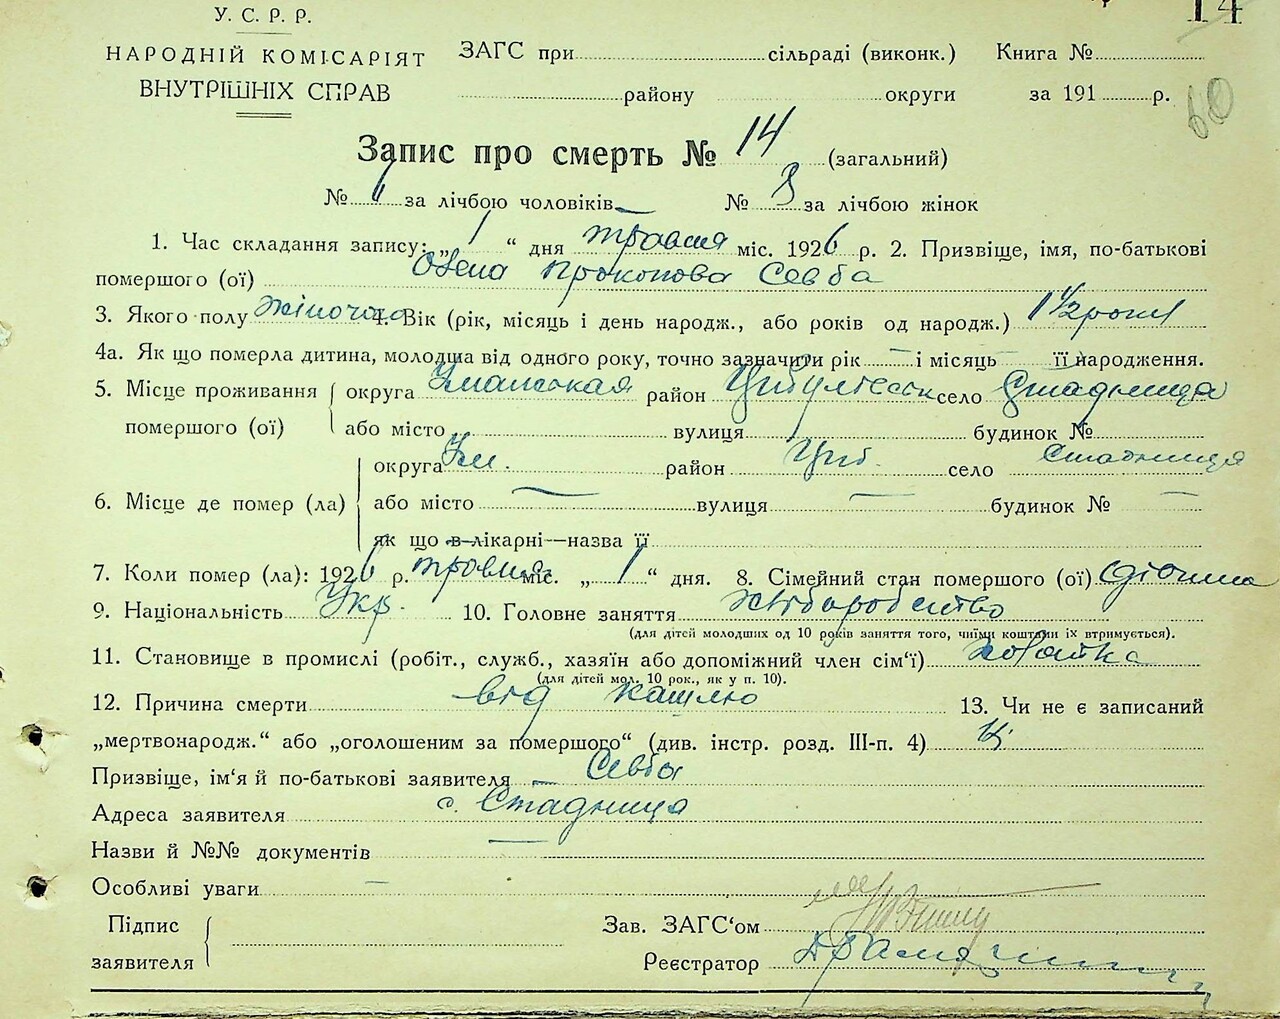 14
У. С. Р. Р.
НАРОДНІЙ КОМІСАРІЯТ
ВНУТРІШНІХ СПРАВ
ЗАГС при сільраді (виконк.) Книга №
району округи за 191 р.
60
Запис про смерть № 14 (загальний)
№ 6 за лічбою чоловіків — № 8 за лічбою жінок
1. Час складання запису: „ 1 “ дня травня міс. 1926 р. 2. Призвіще, імя, по-батькові
помершого (ої) Олена Прокопова Севба
3. Якого полу жіночого 4. Вік (рік, місяць і день народж., або років од народж.) 1 1/2 роки
4а. Як що померла дитина, молодша від одного року, точно зазначити рік — і місяць її народження.
5. Місце проживання округа Уманськая район Цибулівськ село Стадница
помершого (ої) або місто вулиця будинок №
округа Ум. район Циб. село Стадница
6. Місце де помер (ла) або місто — вулиця — будинок № —
як що в лікарні—назва її
7. Коли помер (ла): 1926 р. травня міс. „ 1 “ дня. 8. Сімейний стан помершого (ої)
9. Національність Укр. 10. Головне заняття хліборобство
(для дітей молодших од 10 років заняття того, чиїми коштами їх втримується).
11. Становище в промислі (робіт., служб., хазяїн або допоміжний член сім‘ї)
(для дітей мол. 10 рок., як у п. 10).
12. Причина смерти від кашлю 13. Чи не є записаний
„мертвонародж.“ або „оголошеним за помершого“ (див. інстр. розд. III-п. 4)
Призвіще, ім‘я й по-батькові заявителя — Севба
Адреса заявителя с. Стадница
Назви й №№ документів —
Особливі уваги —
Підпис
заявителя
Зав. ЗАГС‘ом
Реєстратор